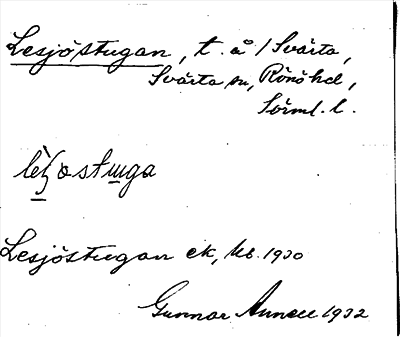 Lesjöstugan, t. å / Svärta,
Svärta sn, Rönö hd,
Södml. l.
Lesjöstugan ek, kb. 1930
Gunnar Annell 1932